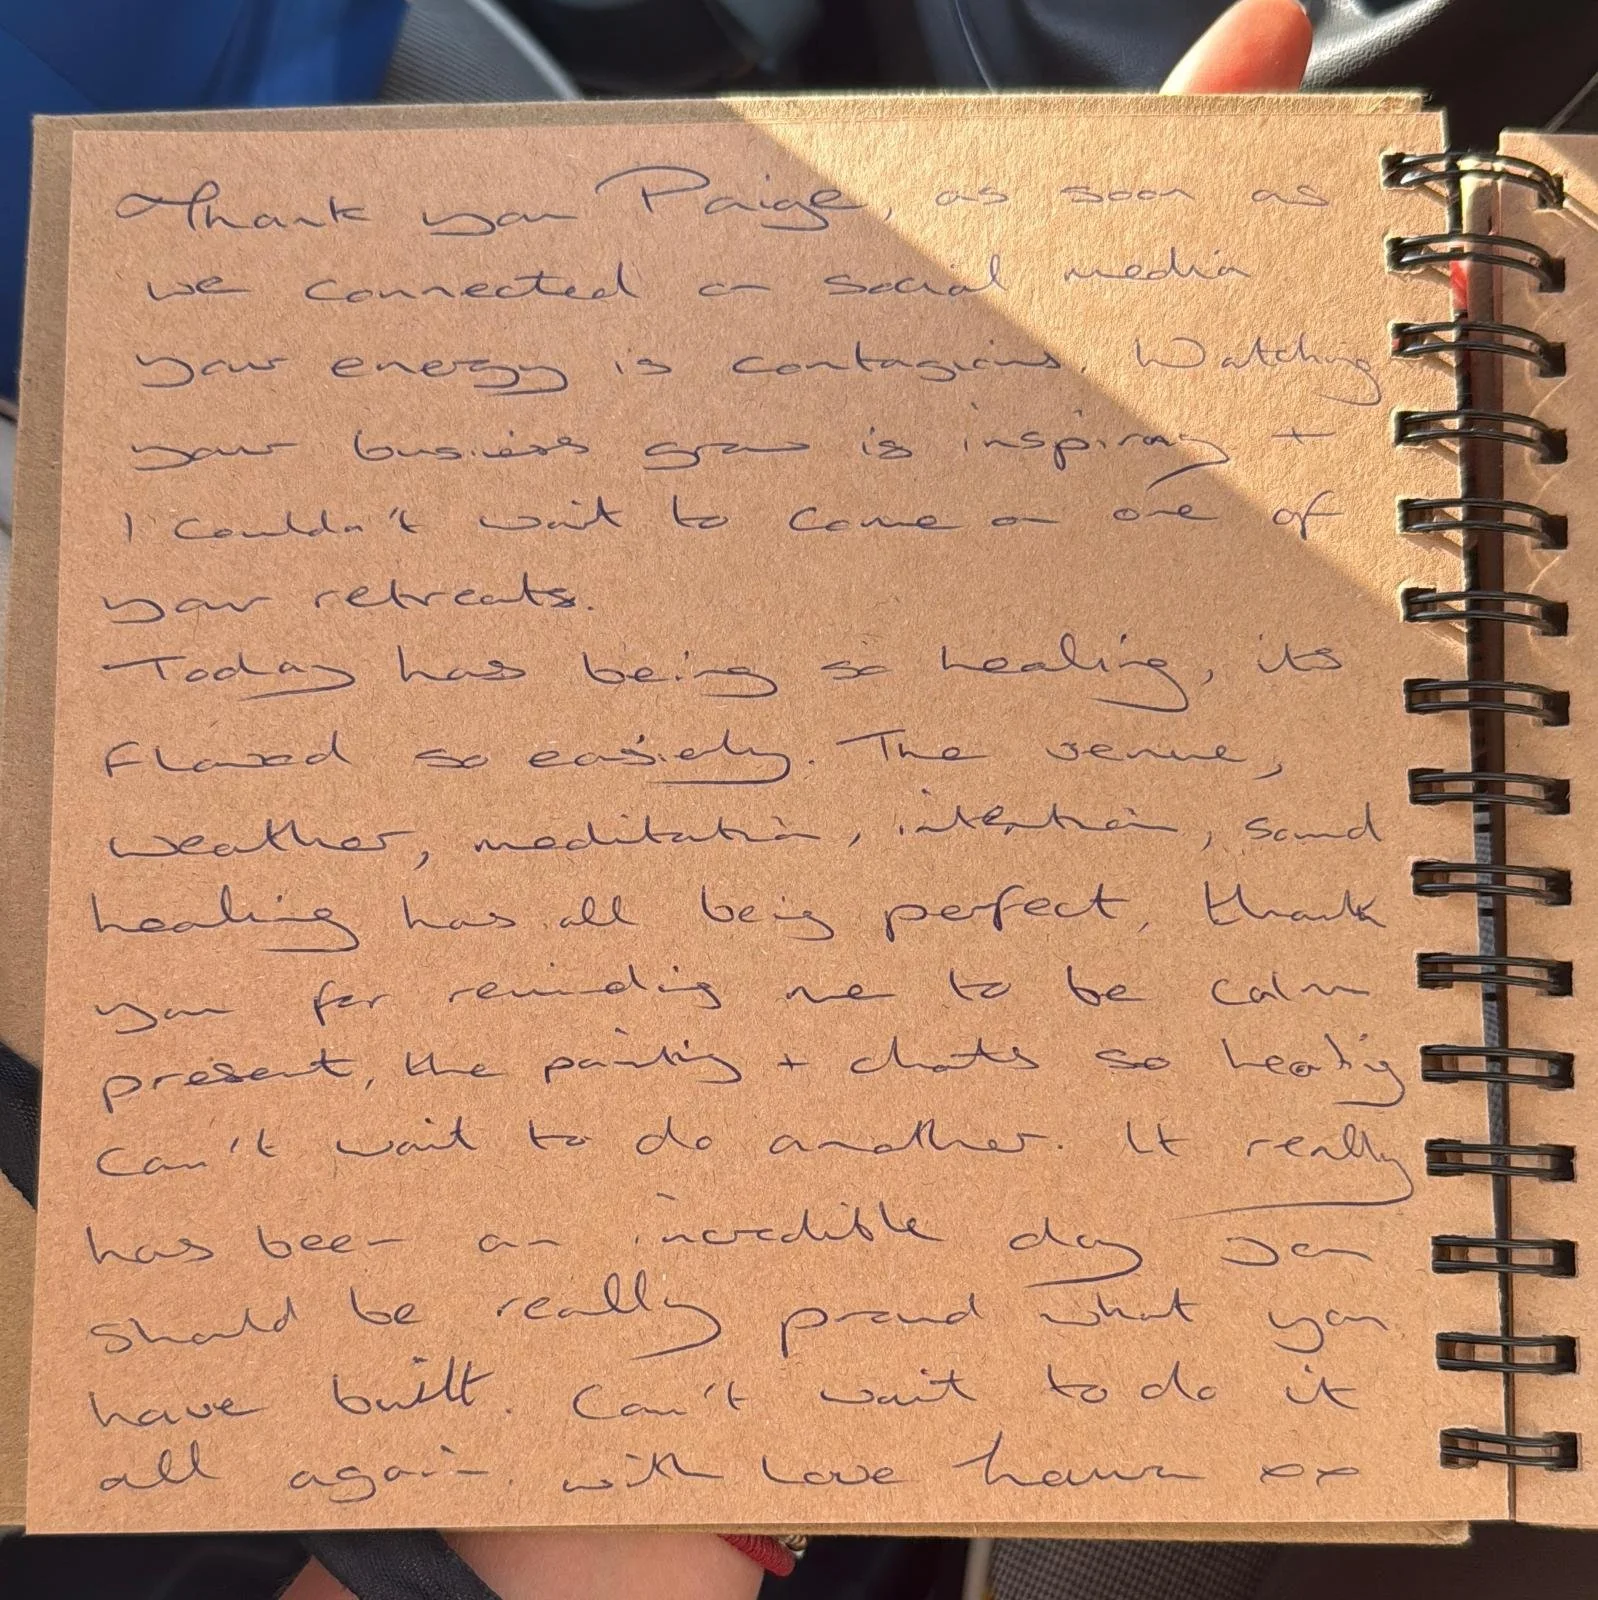 Thank you Paige, as soon as
we connected on social media
your energy is contagious. Watching
your business grow is inspiring +
I couldn't wait to come on one of
your retreats.
Today has being so healing, its
flowed so easiely. The venue,
weather, meditation, intention, sound
healing has all being perfect, thank
you for reminding me to be calm
present, the painting + chats so healing
Can't wait to do another. It really
has been an incredible day you
should be really proud what you
have built. Can't wait to do it
all again. with love xx